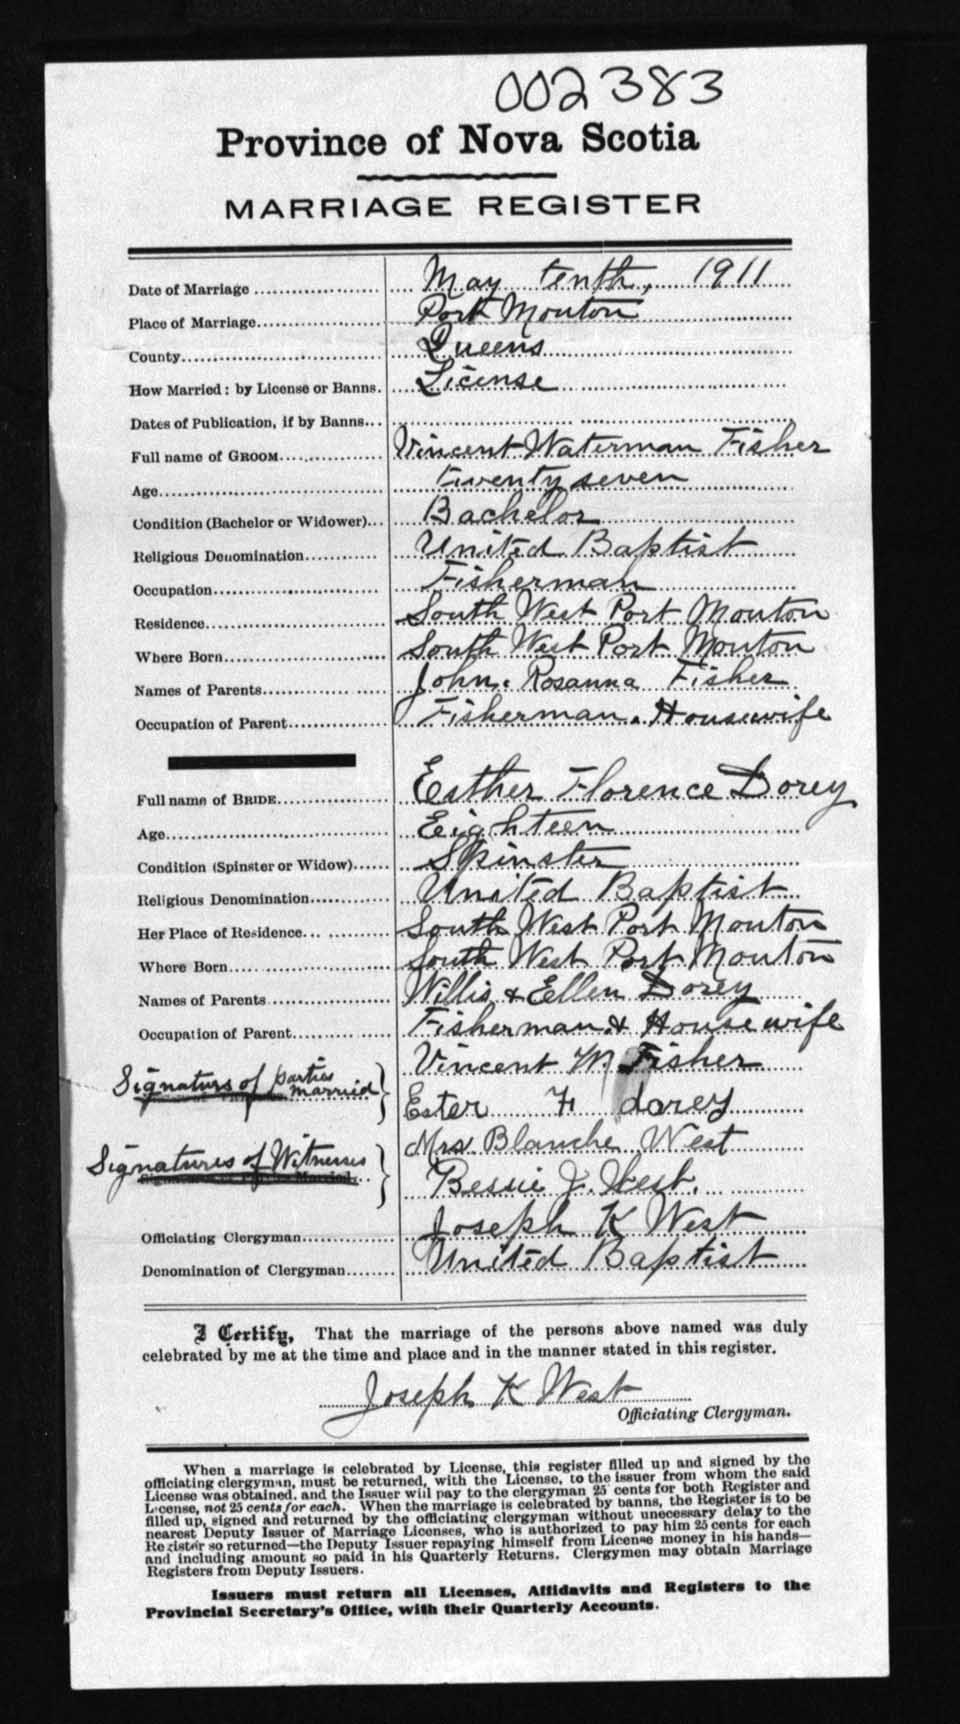 002383
Province of Nova Scotia
MARRIAGE REGISTER
Date of Marriage May tenth, 1911
Place of Marriage Port Mouton
County Queens
How Married: by License or Banns. License
Dates of Publication, if by Banns
Full name of GROOM Vincent Waterman Fisher
Age twenty seven
Condition (Bachelor or Widower) Bachelor
Religious Denomination United Baptist
Occupation Fisherman
Residence South West Port Mouton
Where Born South West Port Mouton
Names of Parents John. Rosanna Fisher
Occupation of Parent Fisherman. Housewife
Full name of BRIDE Esther Florence Dorey
Age Eighteen
Condition (Spinster or Widow) Spinster
Religious Denomination United Baptist
Her Place of Residence South West Port Mouton
Where Born South West Port Mouton
Names of Parents Willis & Ellen Dorey
Occupation of Parent Fisherman & Housewife
Signaturs of parties married } Vincent W Fisher
Ester F dorey
Signatures of Witnesses } Mrs. Blanche West
Bessie J. West.
Officiating Clergyman Joseph K West
Denomination of Clergyman United Baptist
I Certify, That the marriage of the persons above named was duly
celebrated by me at the time and place and in the manner stated in this register.
Joseph K West
Officiating Clergyman.
When a marriage is celebrated by License, this register filled up and signed by the
officiating clergyman, must be returned, with the License, to the issuer from whom the said
License was obtained, and the Issuer will pay to the clergyman 25 cents for both Register and
License, not 25 cents for each. When the marriage is celebrated by banns, the Register is to be
filled up, signed and returned by the officiating clergyman without unecessary delay to the
nearest Deputy Issuer of Marriage Licenses, who is authorized to pay him 25 cents for each
Register so returned—the Deputy Issuer repaying himself from License money in his hands—
and including amount so paid in his Quarterly Returns. Clergymen may obtain Marriage
Registers from Deputy Issuers.
Issuers must return all Licenses, Affidavits and Registers to the
Provincial Secretary's Office, with their Quarterly Accounts.